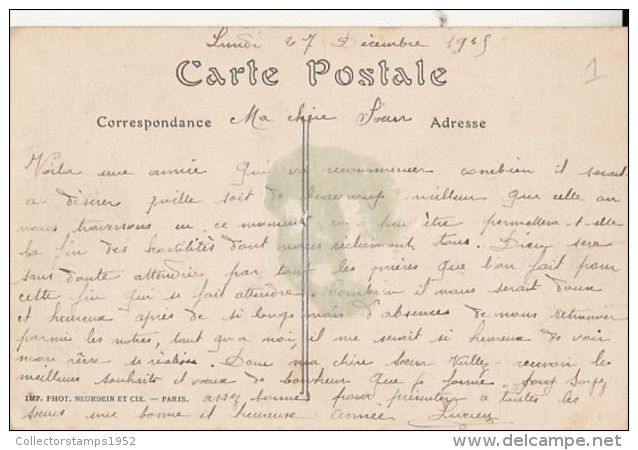 Lundi 27 Décembre 1915
1
Carte Postale
Correspondance Ma chère Sœur Adresse
Voila une année qui va recommencer combien il serait
a désirer qu'elle soit de beaucoup meilleur que celle où
nous traversons en ce moment, peu être permettera-t-elle
la fin des hostilités dont nous réclamont tous. Dieu sera
sans doute attendrie par tout les prières que l'on fait pour
cette fin qui se fait attendre. Combien il nous serait doux
et heureux après de si longs mois d'absences de nous retrouver
parmis les notres, tant qu'a moi, il me serait si heureux de voir
mon rêve se réaliser. Donc ma chère Sœur Veuillez recevoir les
meilleurs souhaits et vœux de bonheur que je forme. Soyez
IMP. PHOT. NEURDEIN ET CIE. — PARIS. assez bonne pour présenter a toutes les
sœurs une bonne et heureuse année Lucien
Collectorstamps1952
delcampe.net